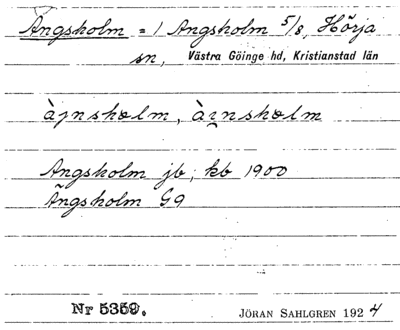 Ängsholm = 1 Ängsholm 5/8, Hörja
sn, Västra Göinge hd, Kristianstad län
Ängsholm jb, kb 1900
Ängsholm G9
Nr 5359. JÖRAN SAHLGREN 1924